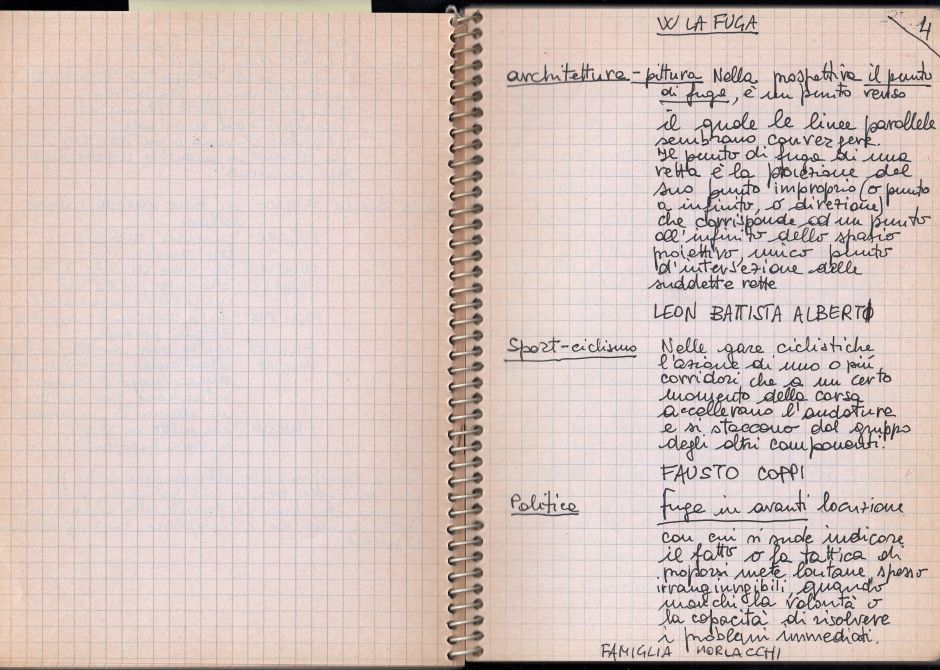 W LA FUGA
4
architettura - pittura Nella prospettiva il punto
di fuga, è un punto verso
il quale le linee parallele
sembrano convergere.
Il punto di fuga di una
retta è la proiezione del
suo punto improprio (o punto
a infinito, o direzione)
che corrisponde ad un punto
all'infinito dello spazio
proiettivo, unico punto
d'intersezione delle
suddette rette
LEON BATTISTA ALBERTI
Sport-ciclismo Nelle gare ciclistiche
l'azione di uno o più
corridori che a un certo
momento della corsa
accellerano l'andatura
e si staccono dal gruppo
degli altri componenti.
FAUSTO COPPI
Politica fuga in avanti locuzione
con cui si suole indicare
il fatto o la tattica di
proporsi mete lontane, spesso
irrangiungibili, quando
manchi la volontà o
la capacità di risolvere
i problemi immediati.
FAMIGLIA MORLACCHI